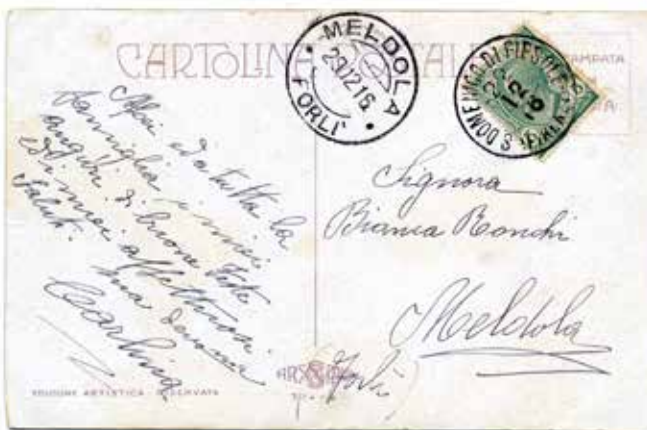 CARTOLINA
MELDOLA
29.12.16
FORLÌ
S. DOMENICO DI FIESOLE
ed a tutta la
famiglia i miei
auguri di buone feste
ed i miei affettuosi
saluti.
Carlina
Signora
Bianca Ronchi
Meldola
Forlì
EDIZIONE ARTISTICA - RISERVATA